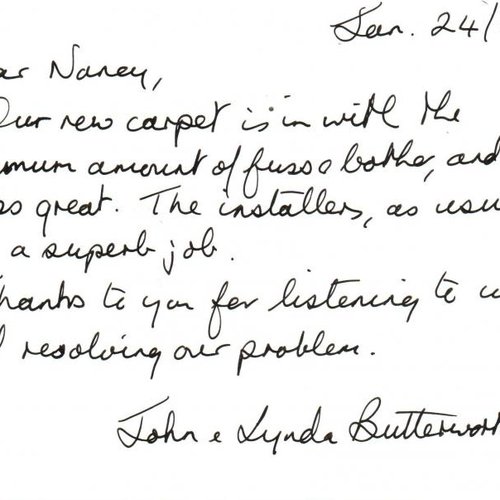 Jan. 24/
ar Nancy,
Our new carpet is in with the
imum amount of fuss & bother, and
so great. The installers, as usu
a superb job.
hanks to you for listening to u
resolving our problem.
John & Lynda Butterwort